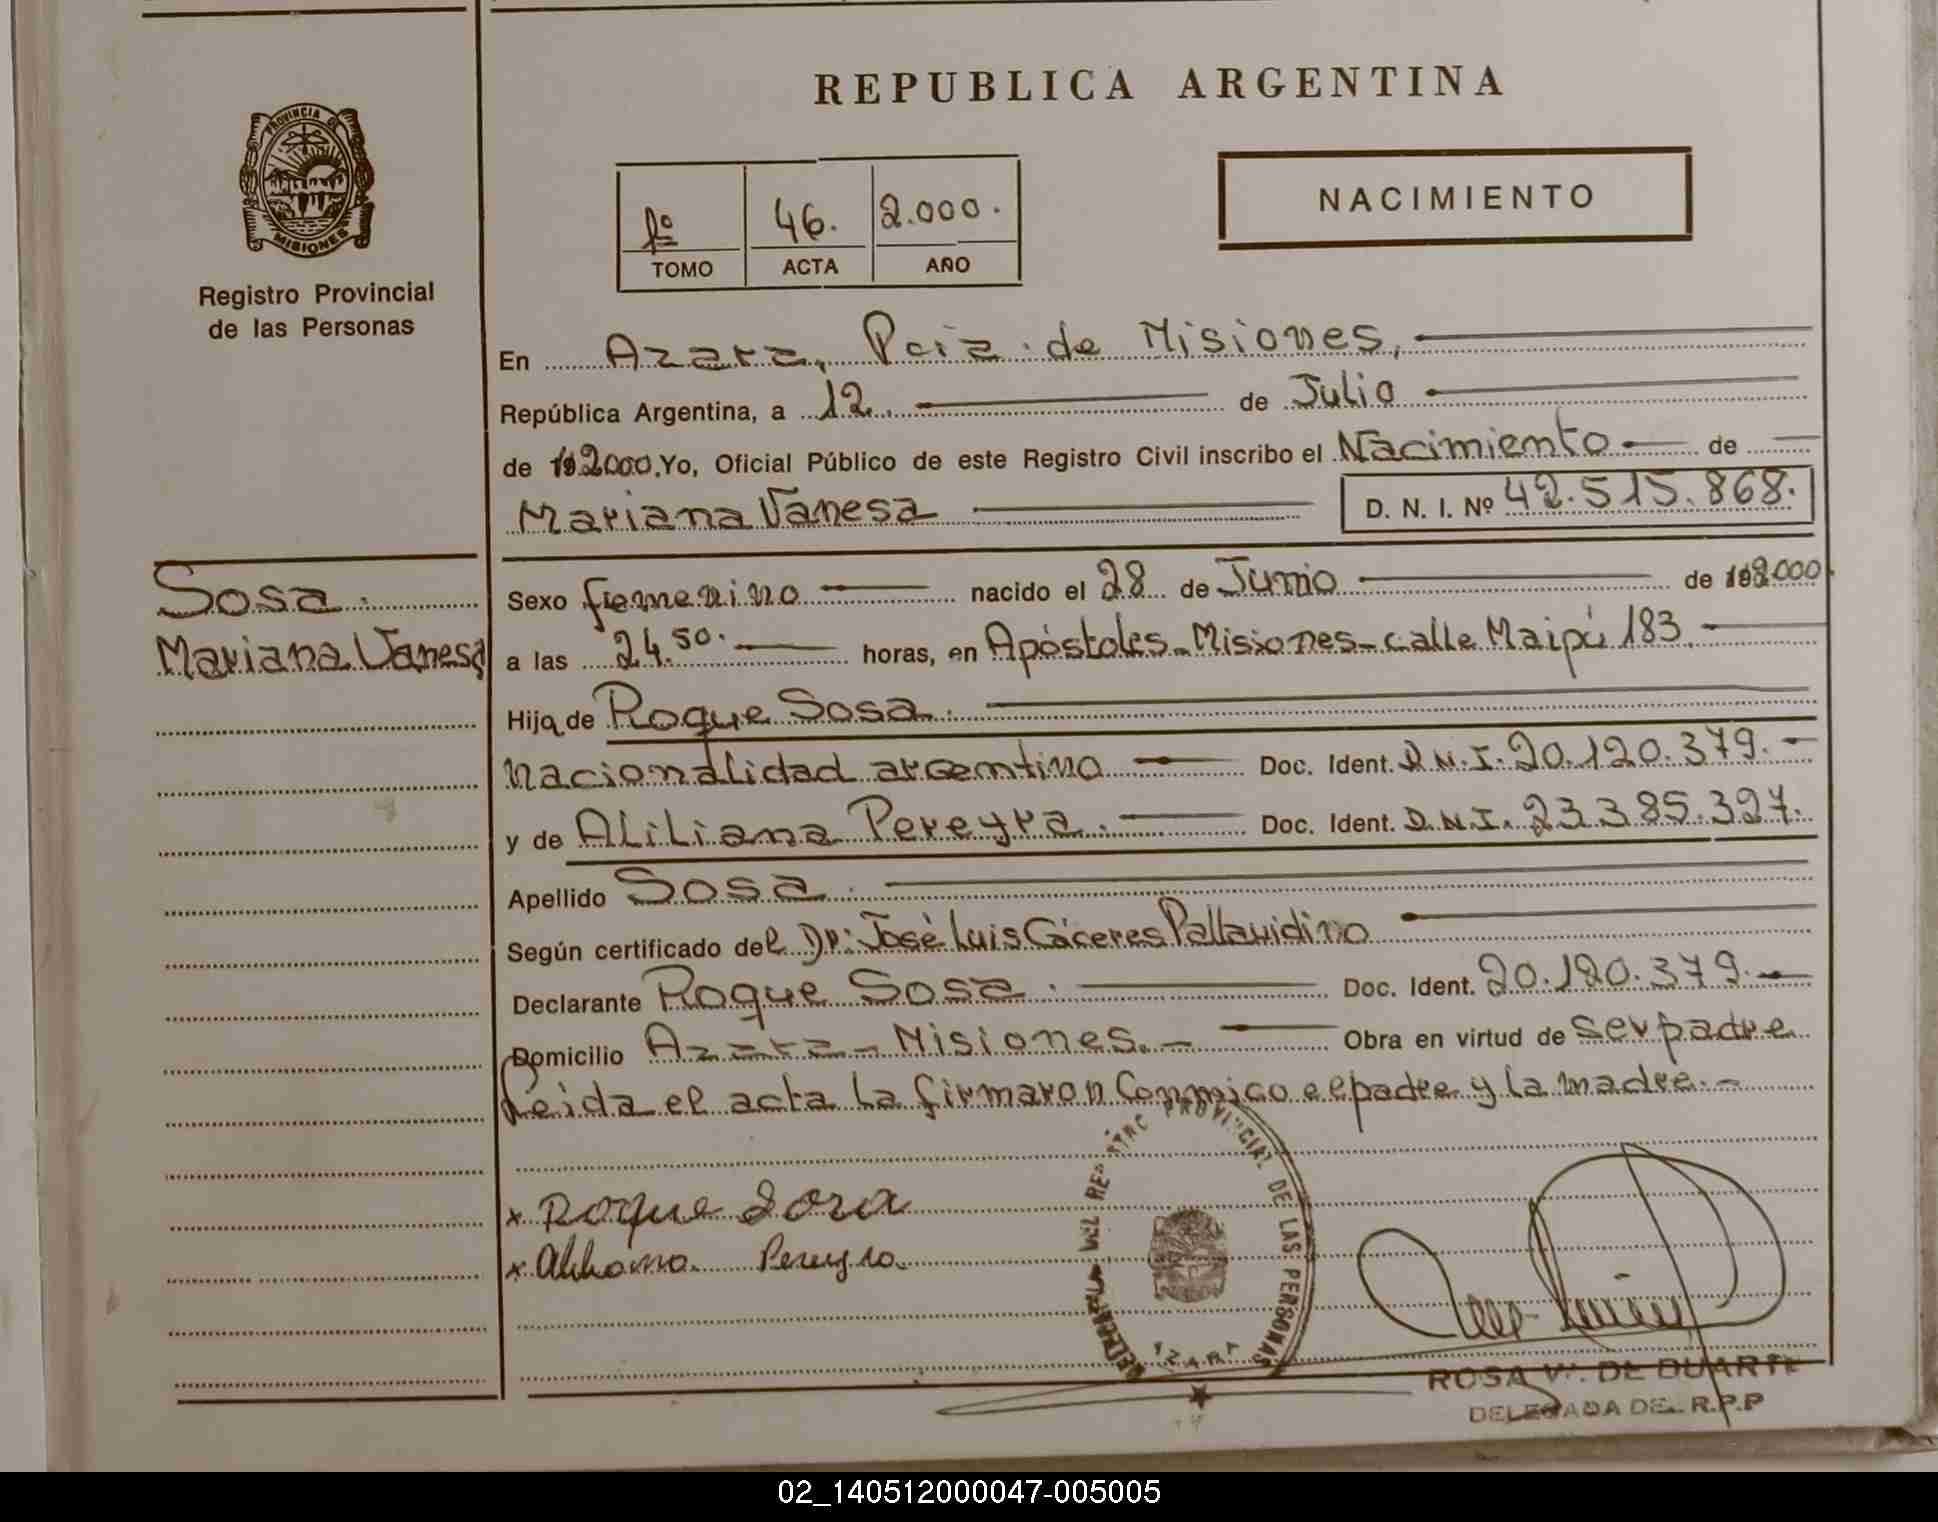 REPUBLICA ARGENTINA
PROVINCIA DE
MISIONES
Registro Provincial
de las Personas
1º 46. 2.000.
TOMO ACTA AÑO
NACIMIENTO
En Azara, Pcia. de Misiones,
República Argentina, a 12 de Julio
de 2000. Yo, Oficial Público de este Registro Civil inscribo el Nacimiento de
Mariana Vanesa D. N. I. Nº 42.515.868.
Sosa.
Mariana Vanesa
Sexo femenino nacido el 28 de Junio de 2000.
a las 24.50. horas, en Apóstoles - Misiones - calle Maipú 183
Hija de Roque Sosa.
nacionalidad argentino Doc. Ident. D.N.I. 20.120.379.
y de ALiLiana Pereyra. Doc. Ident. D.N.I. 23.385.327.
Apellido Sosa.
Según certificado del Dr: José Luis Cáceres Pallavidino
Declarante Roque Sosa. Doc. Ident. 20.120.379.
Domicilio Azara - Misiones. - Obra en virtud de ser padre
Leida el acta la firmaron conmico el padre y la madre. -
x Roque Sosa
x Pereyra
PROVINCIAL DE LAS PERSONAS
ROSA V. DE DUARTE
DELEGADA DEL R.P.P
02_140512000047-005005